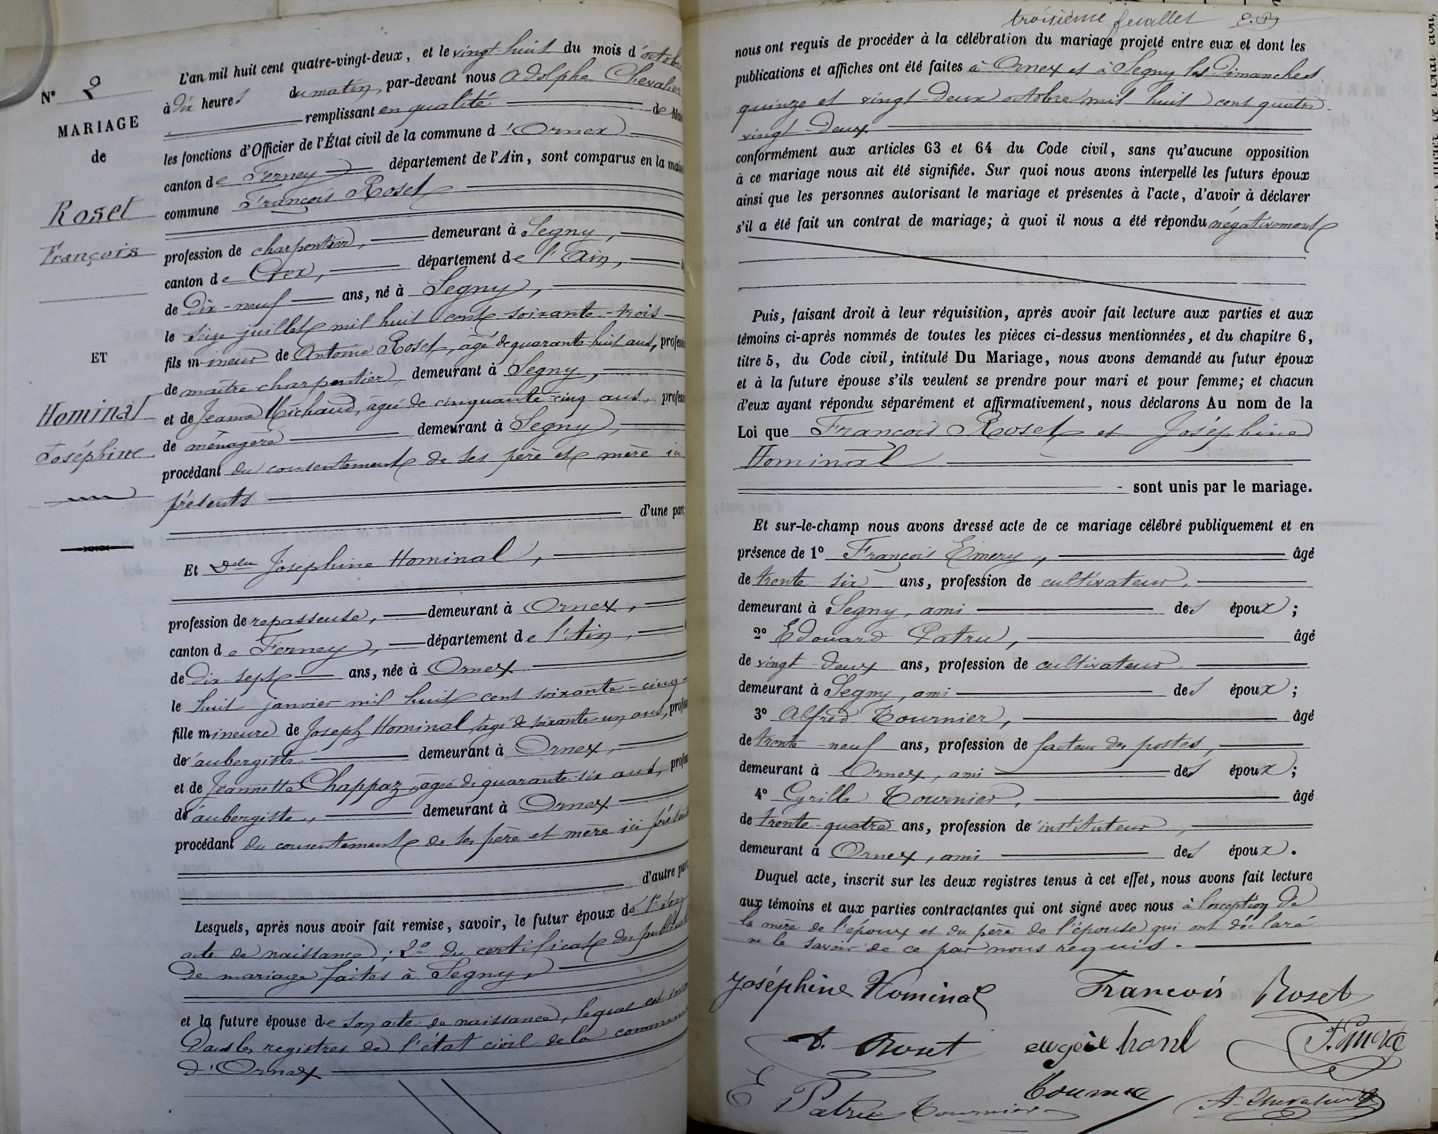 N° 9
MARIAGE
de
Roset
François
ET
Hominal
Joséphine
L'an mil huit cent quatre-vingt-deux, et le vingt huit du mois d'octobre
à dix heures du matin, par-devant nous Adolphe Chevalier
remplissant en qualité de Maire
les fonctions d'Officier de l'État civil de la commune d'Ornex
canton de Ferney département de l'Ain, sont comparus en la maison
commune François Roset
profession de charpentier, demeurant à Segny,
canton de Gex, département de l'Ain,
de Dix-neuf ans, né à Segny,
le juillet mil huit cent soixante-trois
fils mineur de Antoine Roset, âgé de quarante huit ans, profession
de maître charpentier, demeurant à Segny,
et de Jeanne Michaud, âgée de cinquante cinq ans, profession
de ménagère demeurant à Segny,
procédant du consentement de ses père et mère ici
présents
d'une part
Et Dlle Joséphine Hominal,
profession de repasseuse, demeurant à Ornex,
canton de Ferney, département de l'Ain,
de dix sept ans, née à Ornex
le huit janvier mil huit cent soixante-cinq
fille mineure de Joseph Hominal, âgé de soixante un ans, profession
de aubergiste demeurant à Ornex,
et de Jeannette Chappaz, âgée de quarante-six ans, profession
de aubergiste, demeurant à Ornex
procédant du consentement de ses père et mère ici présents
d'autre part
Lesquels, après nous avoir fait remise, savoir, le futur époux de 1° son
acte de naissance; 2° du certificat des publications
de mariage faites à Segny,
et la future épouse de son acte de naissance, lequel est inscrit
dans les registres de l'état civil de la commune
d'Ornex
troisième feuillet
nous ont requis de procéder à la célébration du mariage projeté entre eux et dont les
publications et affiches ont été faites à Ornex et à Segny les dimanches
quinze et vingt-deux octobre mil huit cent quatre-
vingt-deux
conformément aux articles 63 et 64 du Code civil, sans qu'aucune opposition
à ce mariage nous ait été signifiée. Sur quoi nous avons interpellé les futurs époux
ainsi que les personnes autorisant le mariage et présentes à l'acte, d'avoir à déclarer
s'il a été fait un contrat de mariage; à quoi il nous a été répondu négativement
Puis, faisant droit à leur réquisition, après avoir fait lecture aux parties et aux
témoins ci-après nommés de toutes les pièces ci-dessus mentionnées, et du chapitre 6,
titre 5, du Code civil, intitulé Du Mariage, nous avons demandé au futur époux
et à la future épouse s'ils veulent se prendre pour mari et pour femme; et chacun
d'eux ayant répondu séparément et affirmativement, nous déclarons Au nom de la
Loi que François Roset et Joséphine
Hominal
sont unis par le mariage.
Et sur-le-champ nous avons dressé acte de ce mariage célébré publiquement et en
présence de 1° François Emery, âgé
de trente six ans, profession de cultivateur.
demeurant à Segny, ami des époux;
2° Edouard Patru, âgé
de vingt-deux ans, profession de cultivateur
demeurant à Segny, ami des époux;
3° Alfred Tournier, âgé
de trente-neuf ans, profession de facteur des postes,
demeurant à Ornex, ami des époux;
4° Cyrille Tournier, âgé
de trente-quatre ans, profession de instituteur,
demeurant à Ornex, ami des époux.
Duquel acte, inscrit sur les deux registres tenus à cet effet, nous avons fait lecture
aux témoins et aux parties contractantes qui ont signé avec nous à l'exception de
la mère de l'époux et du père de l'épouse qui ont déclaré
ne le savoir de ce par nous requis.
Joséphine Hominal François Roset
A. Roset
E Patru Tournier A. Chevalier